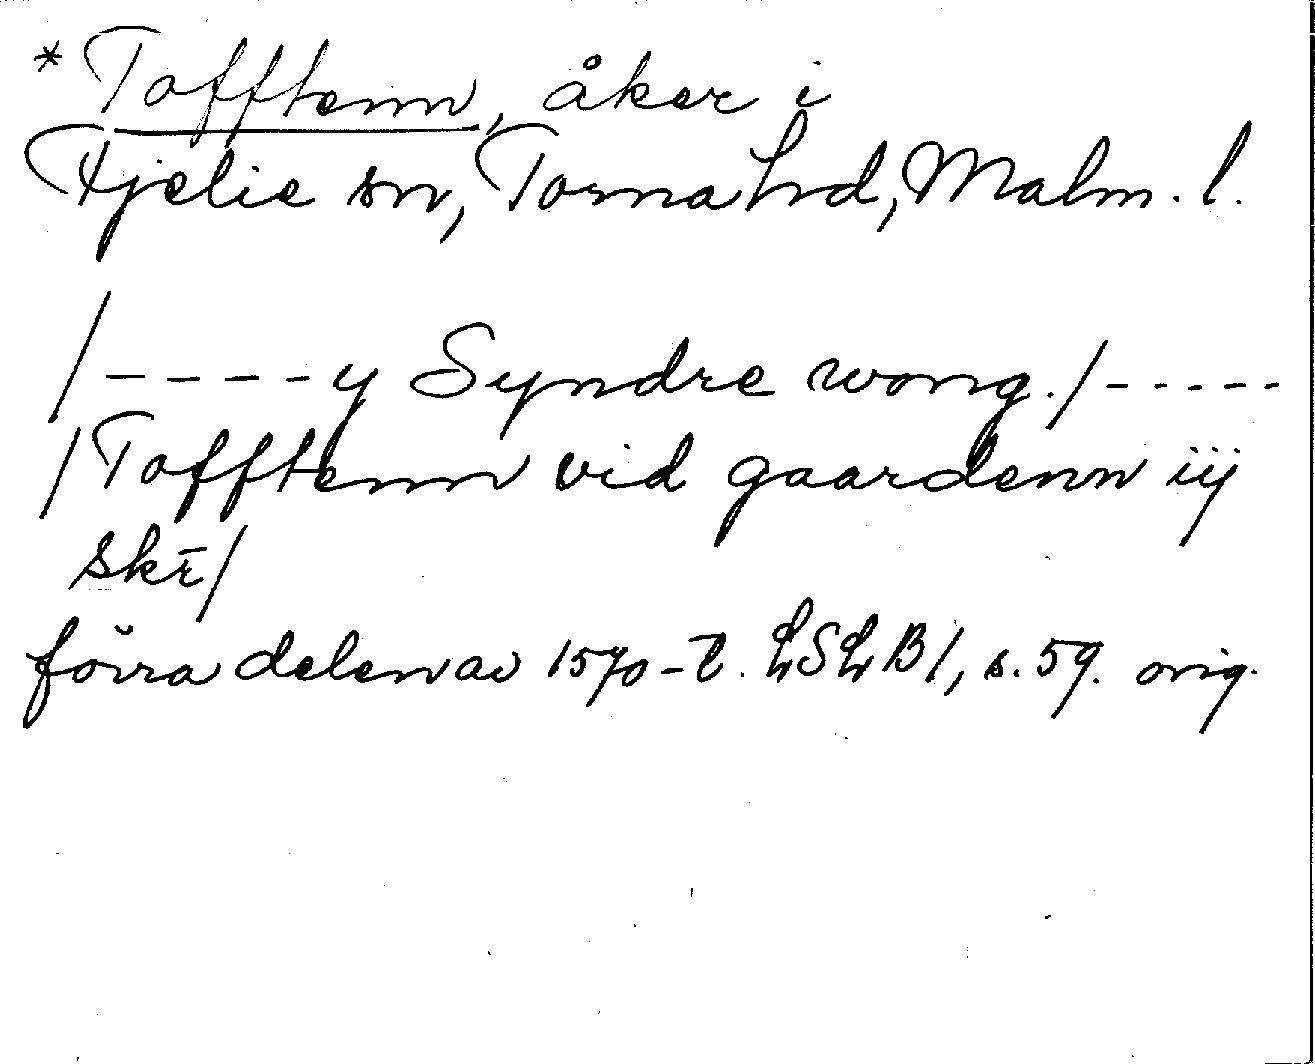 *Tofftenn, åker i
Fjelie sn, Torna hd, Malm. l.
/----y Syndre wong./-----
/Tofftenn vid gaardenn iij
skr̄/
förra delen av 1570-t. LSLB1, s. 59. orig.